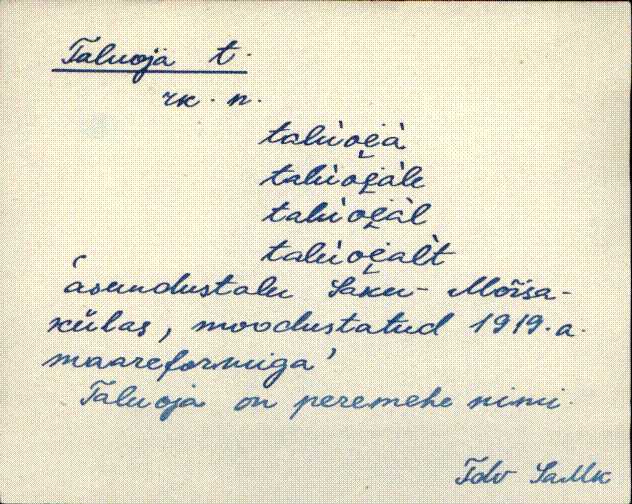 Taluoja t.
rk. n.
talùoi̯à
talùoi̯àle
talùoi̯àl
talùoi̯al̀t
'asundustalu Saku-Mõisa-
külas, moodustatud 1919. a.
maareformiga'
Taluoja on peremehe nimi.